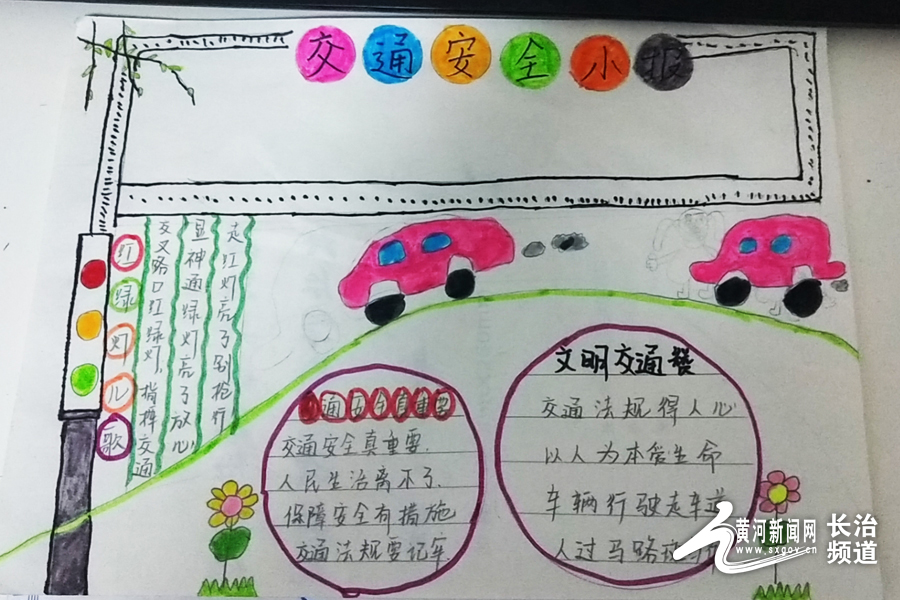 交通安全小报
红绿灯儿歌
交叉路口红绿灯，指挥交通
显神通绿灯亮了放心
走红灯亮了别抢行
通安全真重要
交通安全真重要.
人民生活离不了.
保障安全有措施
交通法规要记牢.
文明交通
交通法规得人心
以人为本管生命
车辆行驶走车道
人过马路
黄河新闻网
www.sxgov.cn
长治
频道